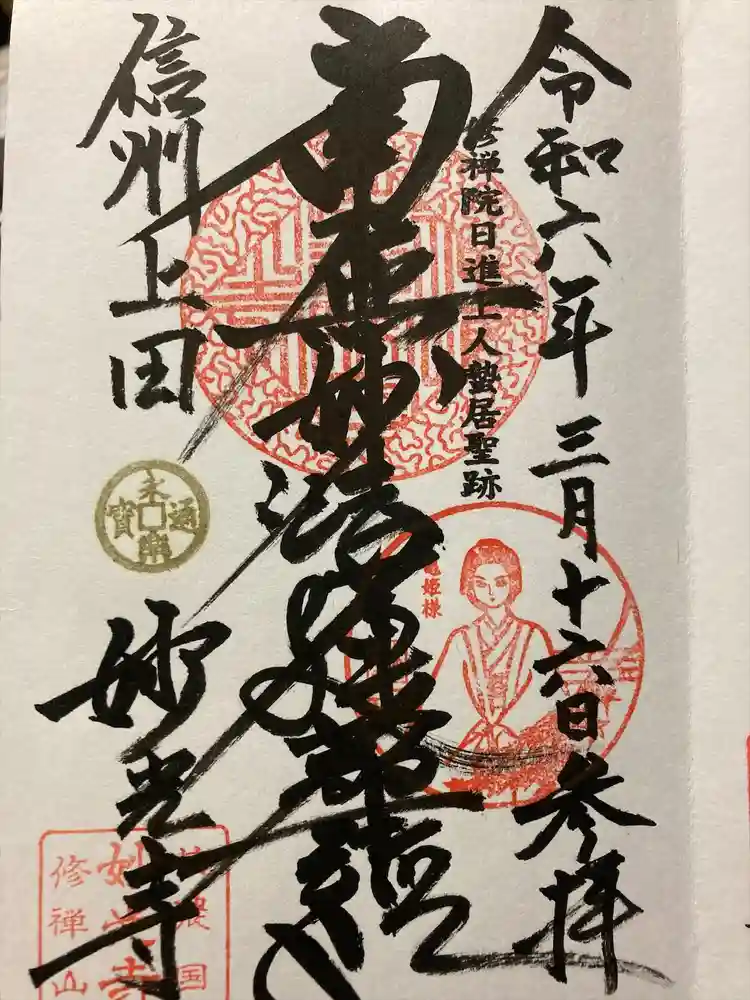 令和六年三月十六日参拝
修禅院日進上人蟄居聖跡
南無妙法蓮華経
姫様
信州上田
永樂通寶
妙光寺
国
妙光寺
修禅山